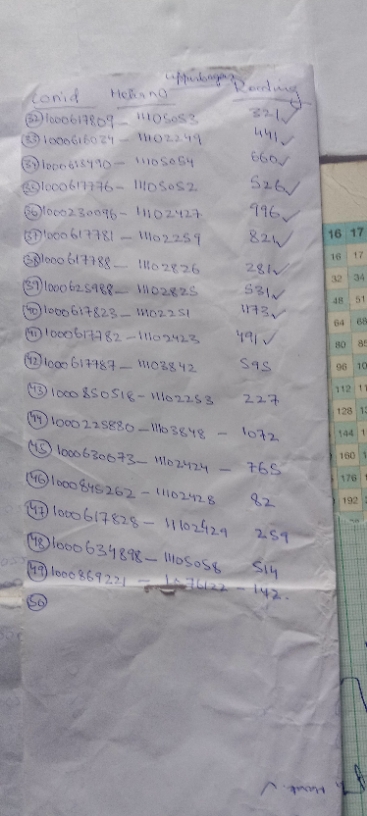 Uppunbagan
conid MeterNO Reading
32 1000617809 - 11105053 321 ✓
33 1000616034 - 11102249 441 ✓
34 1000618490 - 11105054 660 ✓
35 1000617776 - 11105052 526 ✓
36 1000230096 - 11102427 996 ✓
37 1000617781 - 11102259 821 ✓
38 1000617788 - 11102826 281 ✓
39 1000625988 - 11102825 531 ✓
40 1000617823 - 11102251 1173 ✓
41 1000617782 - 11102423 491 ✓
42 1000617787 - 11103842 595
43 1000850518 - 11102253 227
44 1000225880 - 11103848 - 1072
45 1000630073 - 11102424 - 765
46 1000845262 - 11102428 82
47 1000617828 - 11102429 259
48 1000634898 - 11105058 514
49 1000869221 - 76122 - 142.
50
16 17
16 17
32 34
48 51
64 68
80 85
96
112
128
144
160
176
192